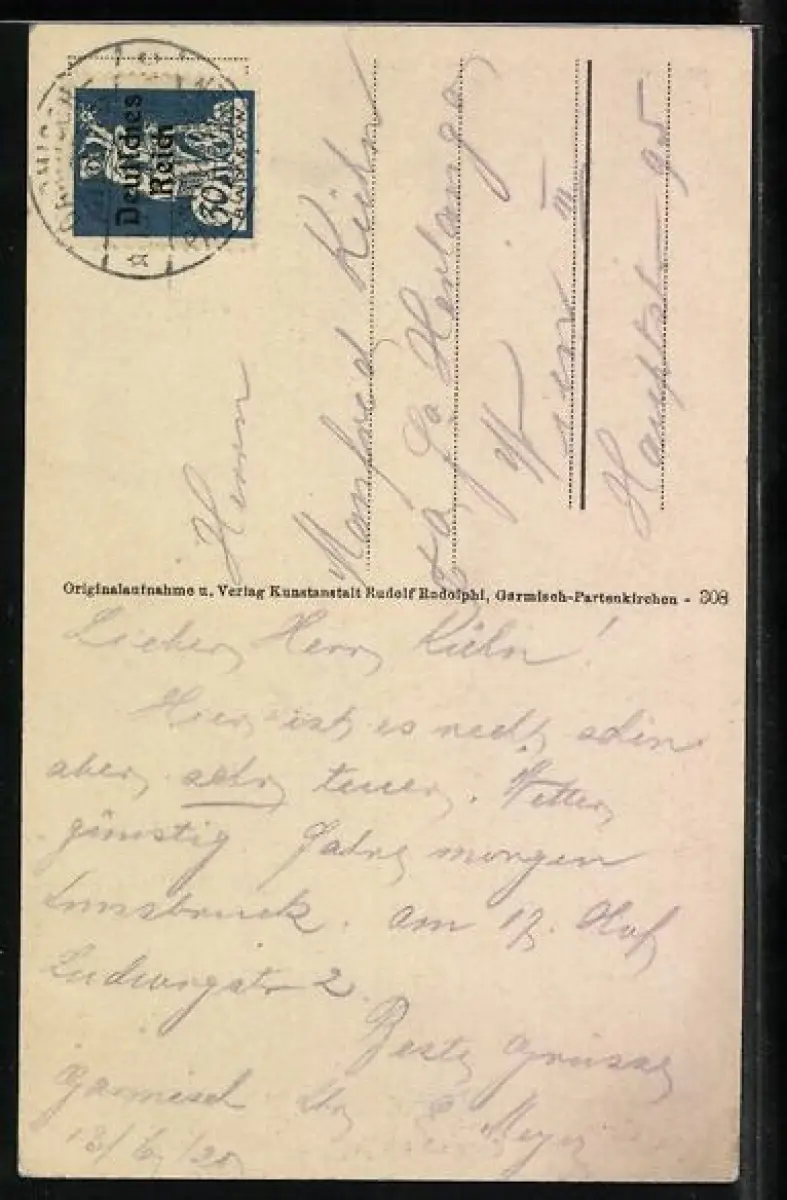 Deutsches
Reich
30
BAYERN
Herrn
Manfred Kühn
Wien III
Hauptstr 95
Originalaufnahme u. Verlag Kunstanstalt Rudolf Rudolphi, Garmisch-Partenkirchen - 308
Lieber Herr Kühn!
Hier ist es recht schön
aber sehr teuer. Wetter
günstig. Fahre morgen
Innsbruck. Am 17. Hof
Ludwigstr 2.
Beste Grüsse
Garmisch Ihr Meyer
13/6/20